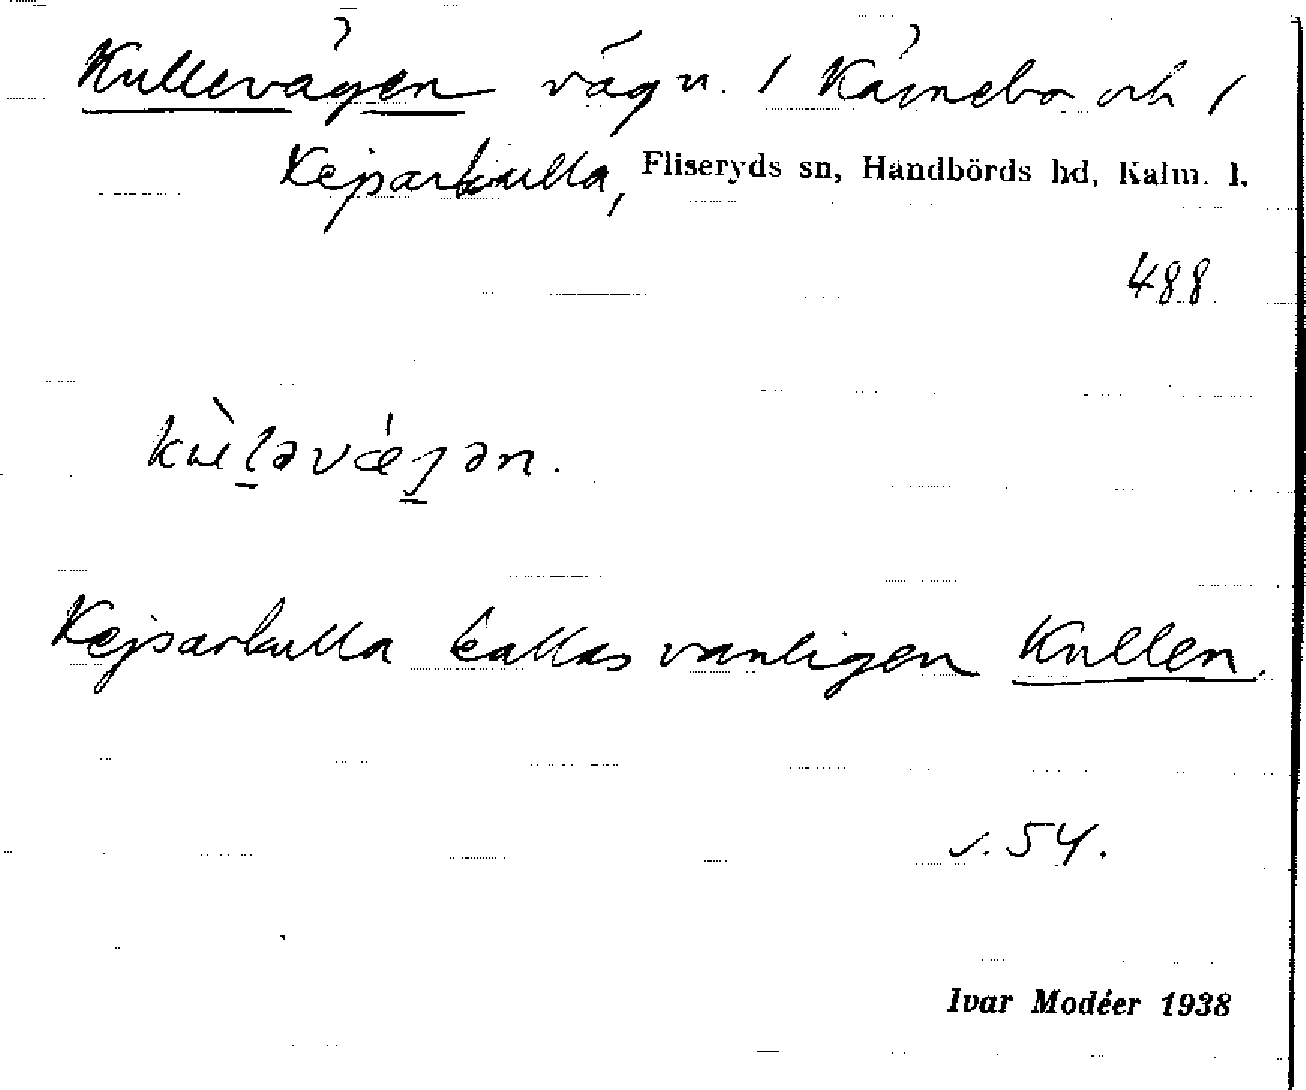 Kullevägen vägn. i Kärnebo och i
Kejsarkulla, Fliseryds sn, Handbörds hd, Kalm. l.
488
kùlavǽgən.
Kejsarkulla kallas vanligen Kullen.
s. 54.
Ivar Modéer 1938